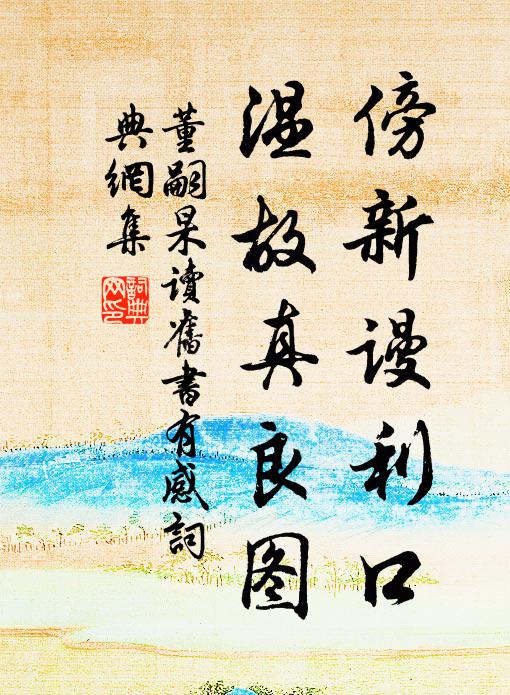 傍新謾利口
温故真良图
董嗣杲讀舊書有感詞
典網集
詞典
网印